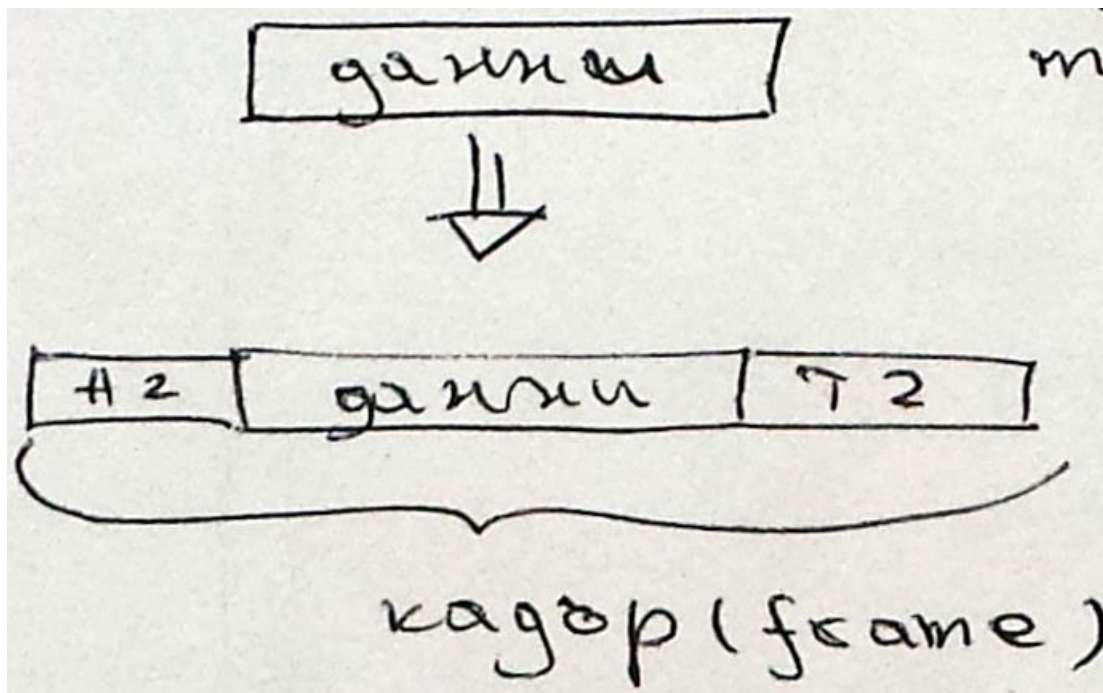 данни
H2 данни T2
кадър (frame)